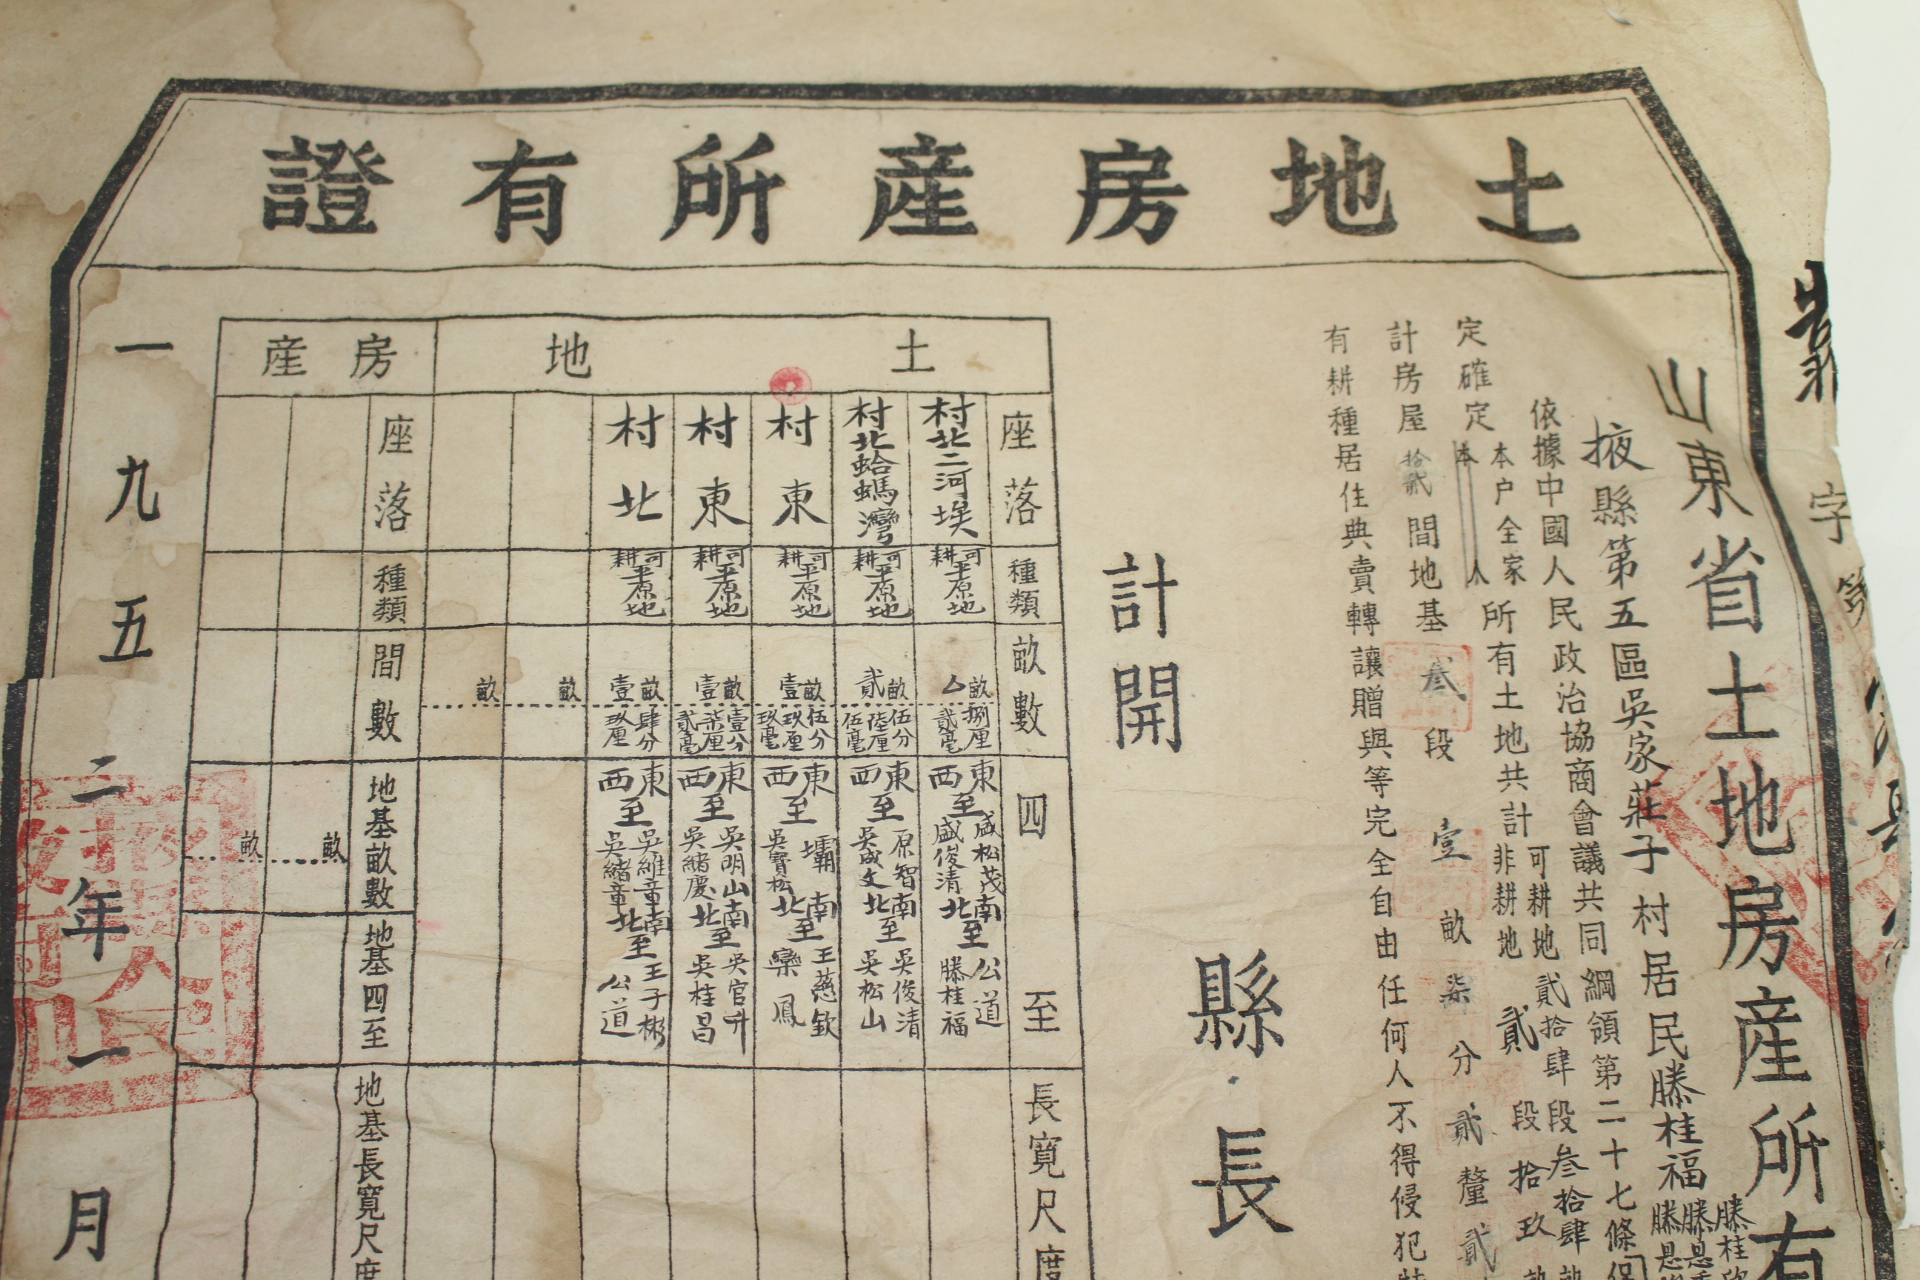 土地房產所有證
字第
山東省土地房產所有
掖縣第五區吳家莊子村居民滕桂福
滕桂欣
滕恩
滕恩
依據中國人民政治協商會議共同綱領第二十七條保
定確定本户全家本人所有土地共計
可耕地貳拾肆段叁拾肆畝
非耕地貳段拾玖畝
計房屋拾貳間地基叁段壹畝柒分貳釐貳
有耕種居住典賣轉讓贈與等完全自由任何人不得侵犯特
縣長
計開
土地
座落 種類 畝數 四至 長寬尺度
村北二河埃 可耕平原地 厶畝捌厘貳毫 東至盛松茂 西至盛俊清 南至公道 北至滕桂福
村北蛤螞灣 可耕平原地 貳畝伍分陸厘伍毫 東至原智 西至吳成文 南至吳俊清 北至吳松山
村東 可耕平原地 壹畝伍分玖厘玖毫 東至壩 西至吳寶松 南至王慈欽 北至欒鳳
村東 可耕平原地 壹畝壹分柒厘貳毫 東至吳明山 西至吳緒慶 南至吳官升 北至吳桂昌
村北 可耕平原地 壹畝肆分玖厘 東至吳維童 西至吳緒童 南至王子彬 北至公道
畝
畝
房產
座落 種類 間數 地基畝數 地基四至 地基長寬尺度
畝
畝
一九五二年一月